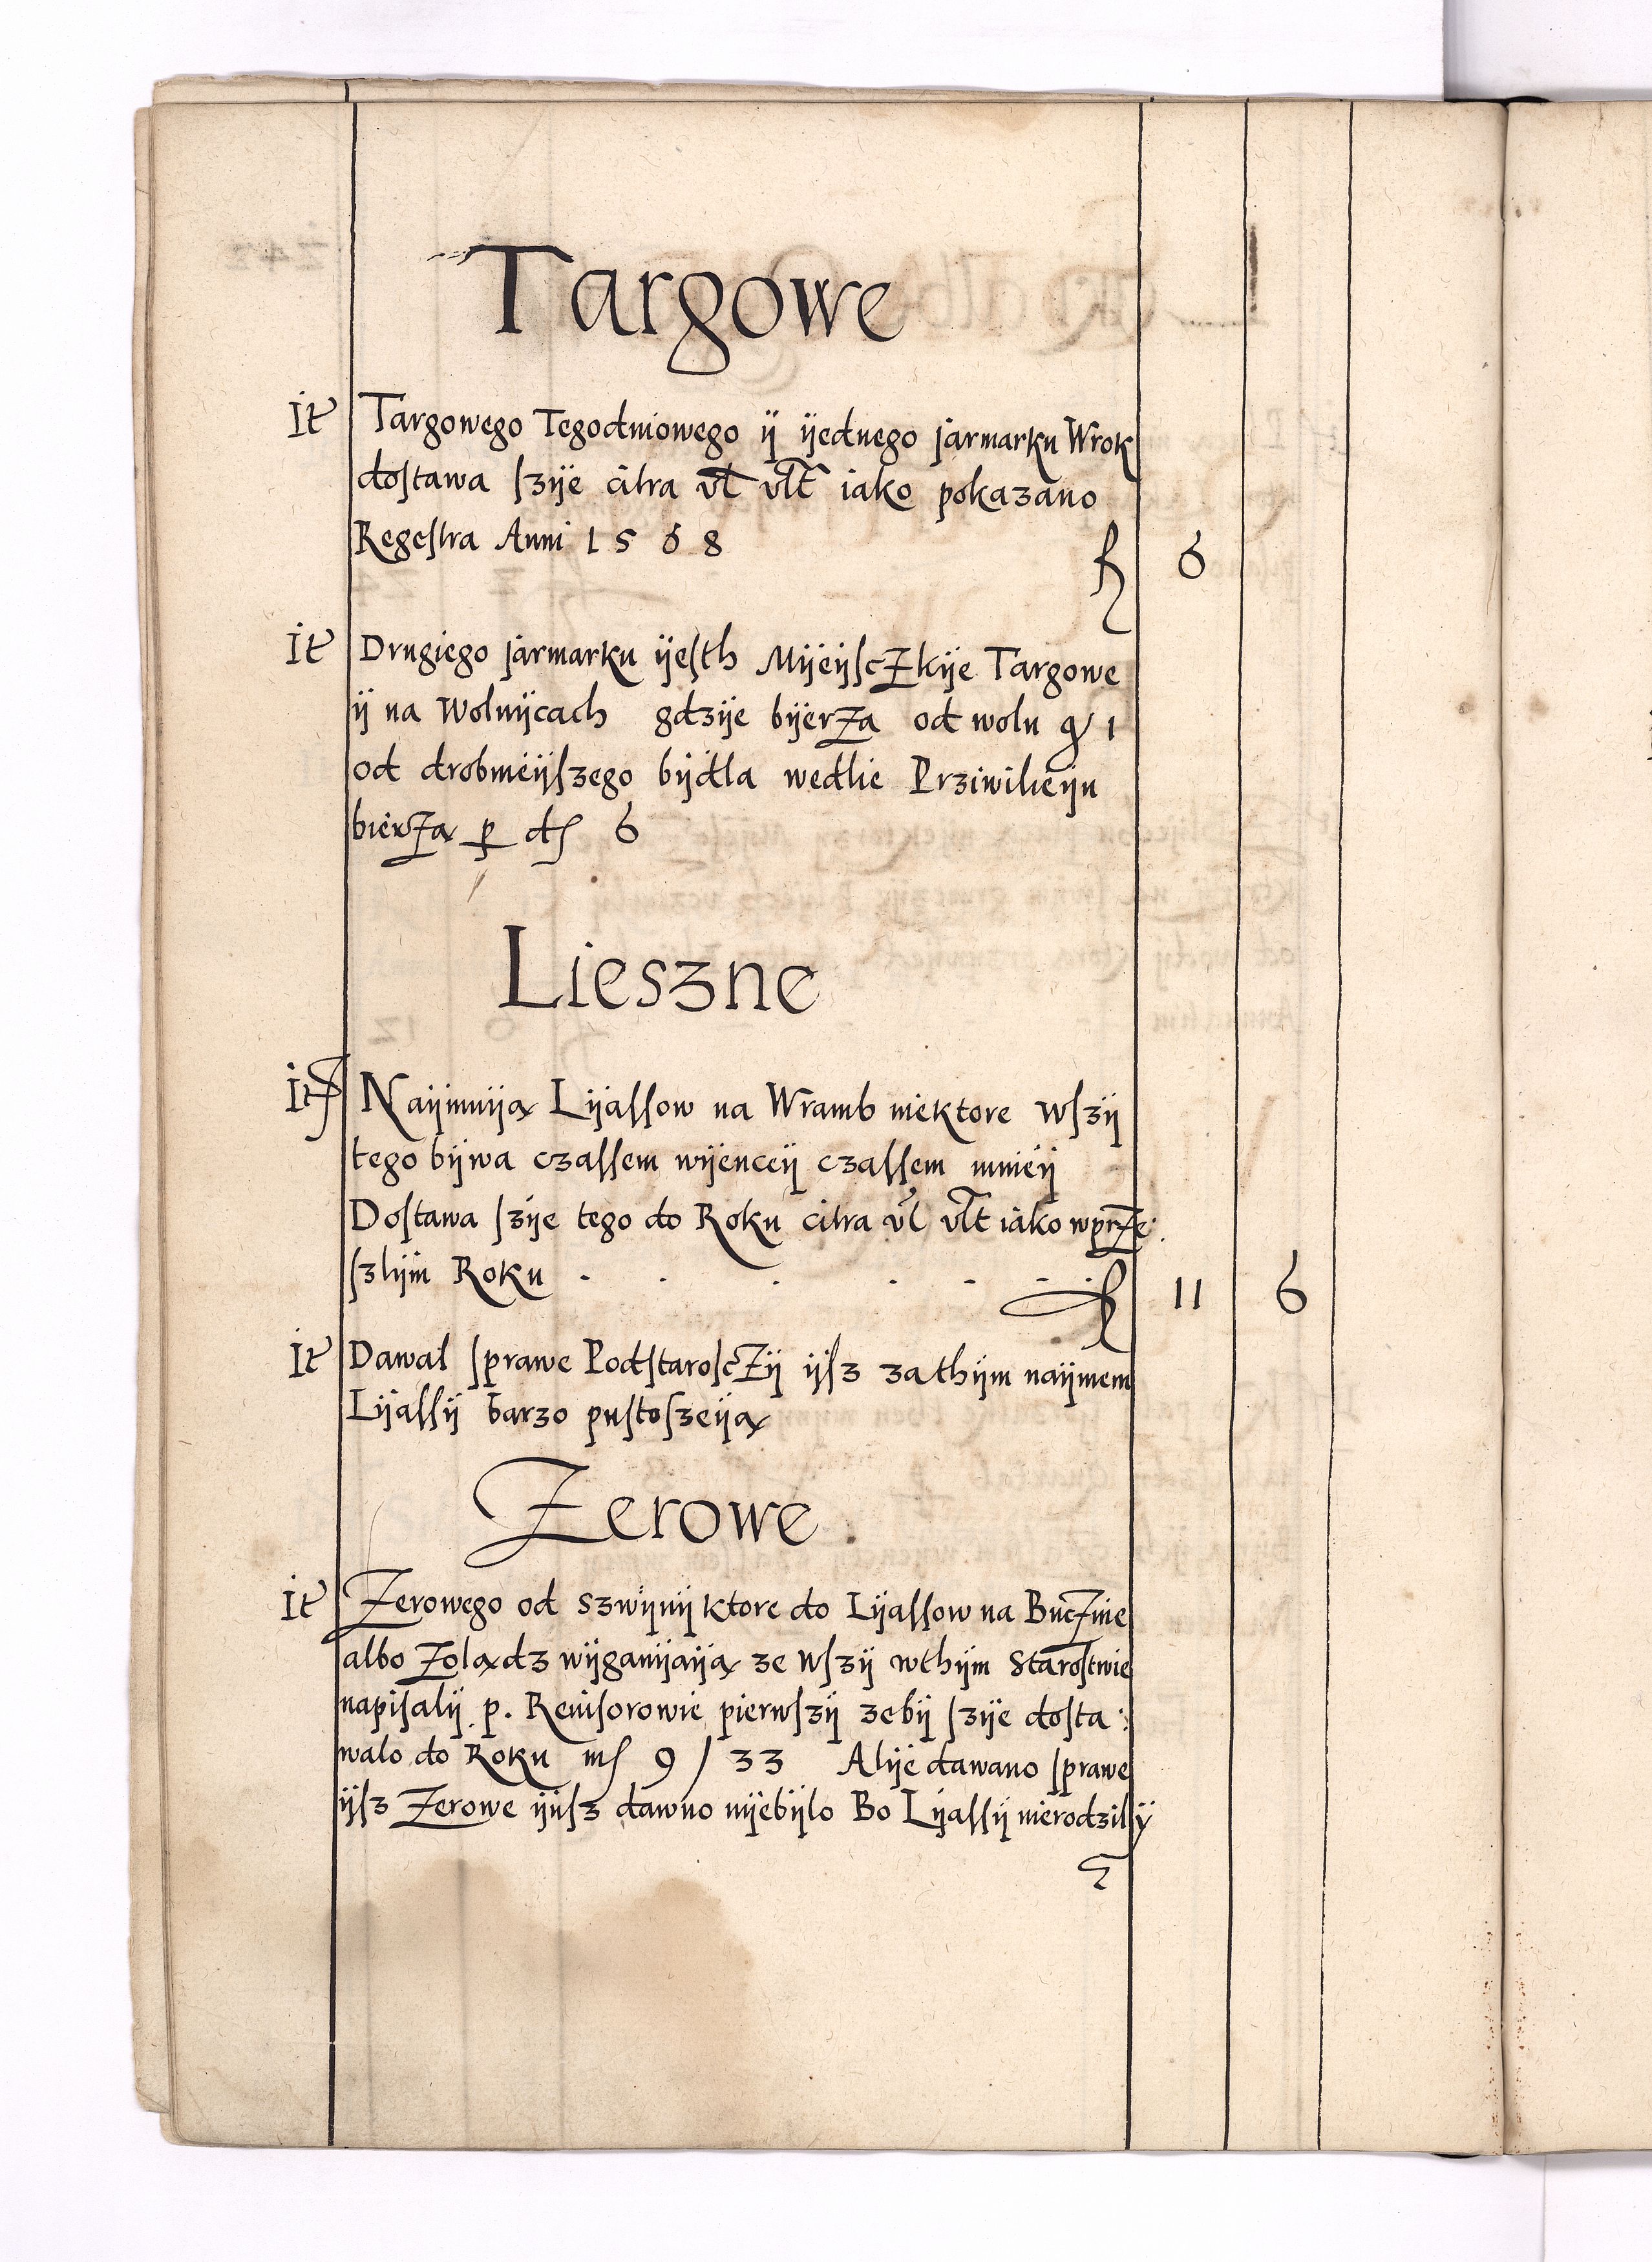 Targowe
It Targowego Tegodniowego ÿ ÿednego jarmarku Wrok
dostawa szÿe citra vl vlt iako pokazano
Regestra Anni 1568 6
It Drugiego jarmarku ÿesth MÿeÿscZkÿe Targowe
ÿ na Wolnÿcach gdzÿe bÿerZa od wolu g 1
od drobnieÿszego bÿdla wedlie Prziwilieÿu
bierZą p d 6
Lieszne
It Naÿmuÿą Lÿassow na Wramb niektore Wszÿ
tego bÿwa czassem wÿenceÿ czassem mnieÿ
Dostawa szÿe tego do Roku citra vl vlt iako wprZe:
szlÿm Roku 11 6
It Dawal sprawe PodstaroscZÿ ÿsz zathÿm naÿmem
Lÿassÿ barzo pustoszeÿą
Zerowe
It Zerowego od Szwÿnÿ ktore do Lÿassow na BucZnie
albo Zolądz wÿganÿaÿą ze Wszÿ wthÿm Starostwie
napisalÿ p. Reuisorowie pierwszÿ zebÿ szÿe dosta:
walo do Roku m 9 / 33 Alÿe dawano sprawe
ÿsz Zerowe ÿusz dawno nÿebÿlo Bo Lÿassÿ nierodzilÿ